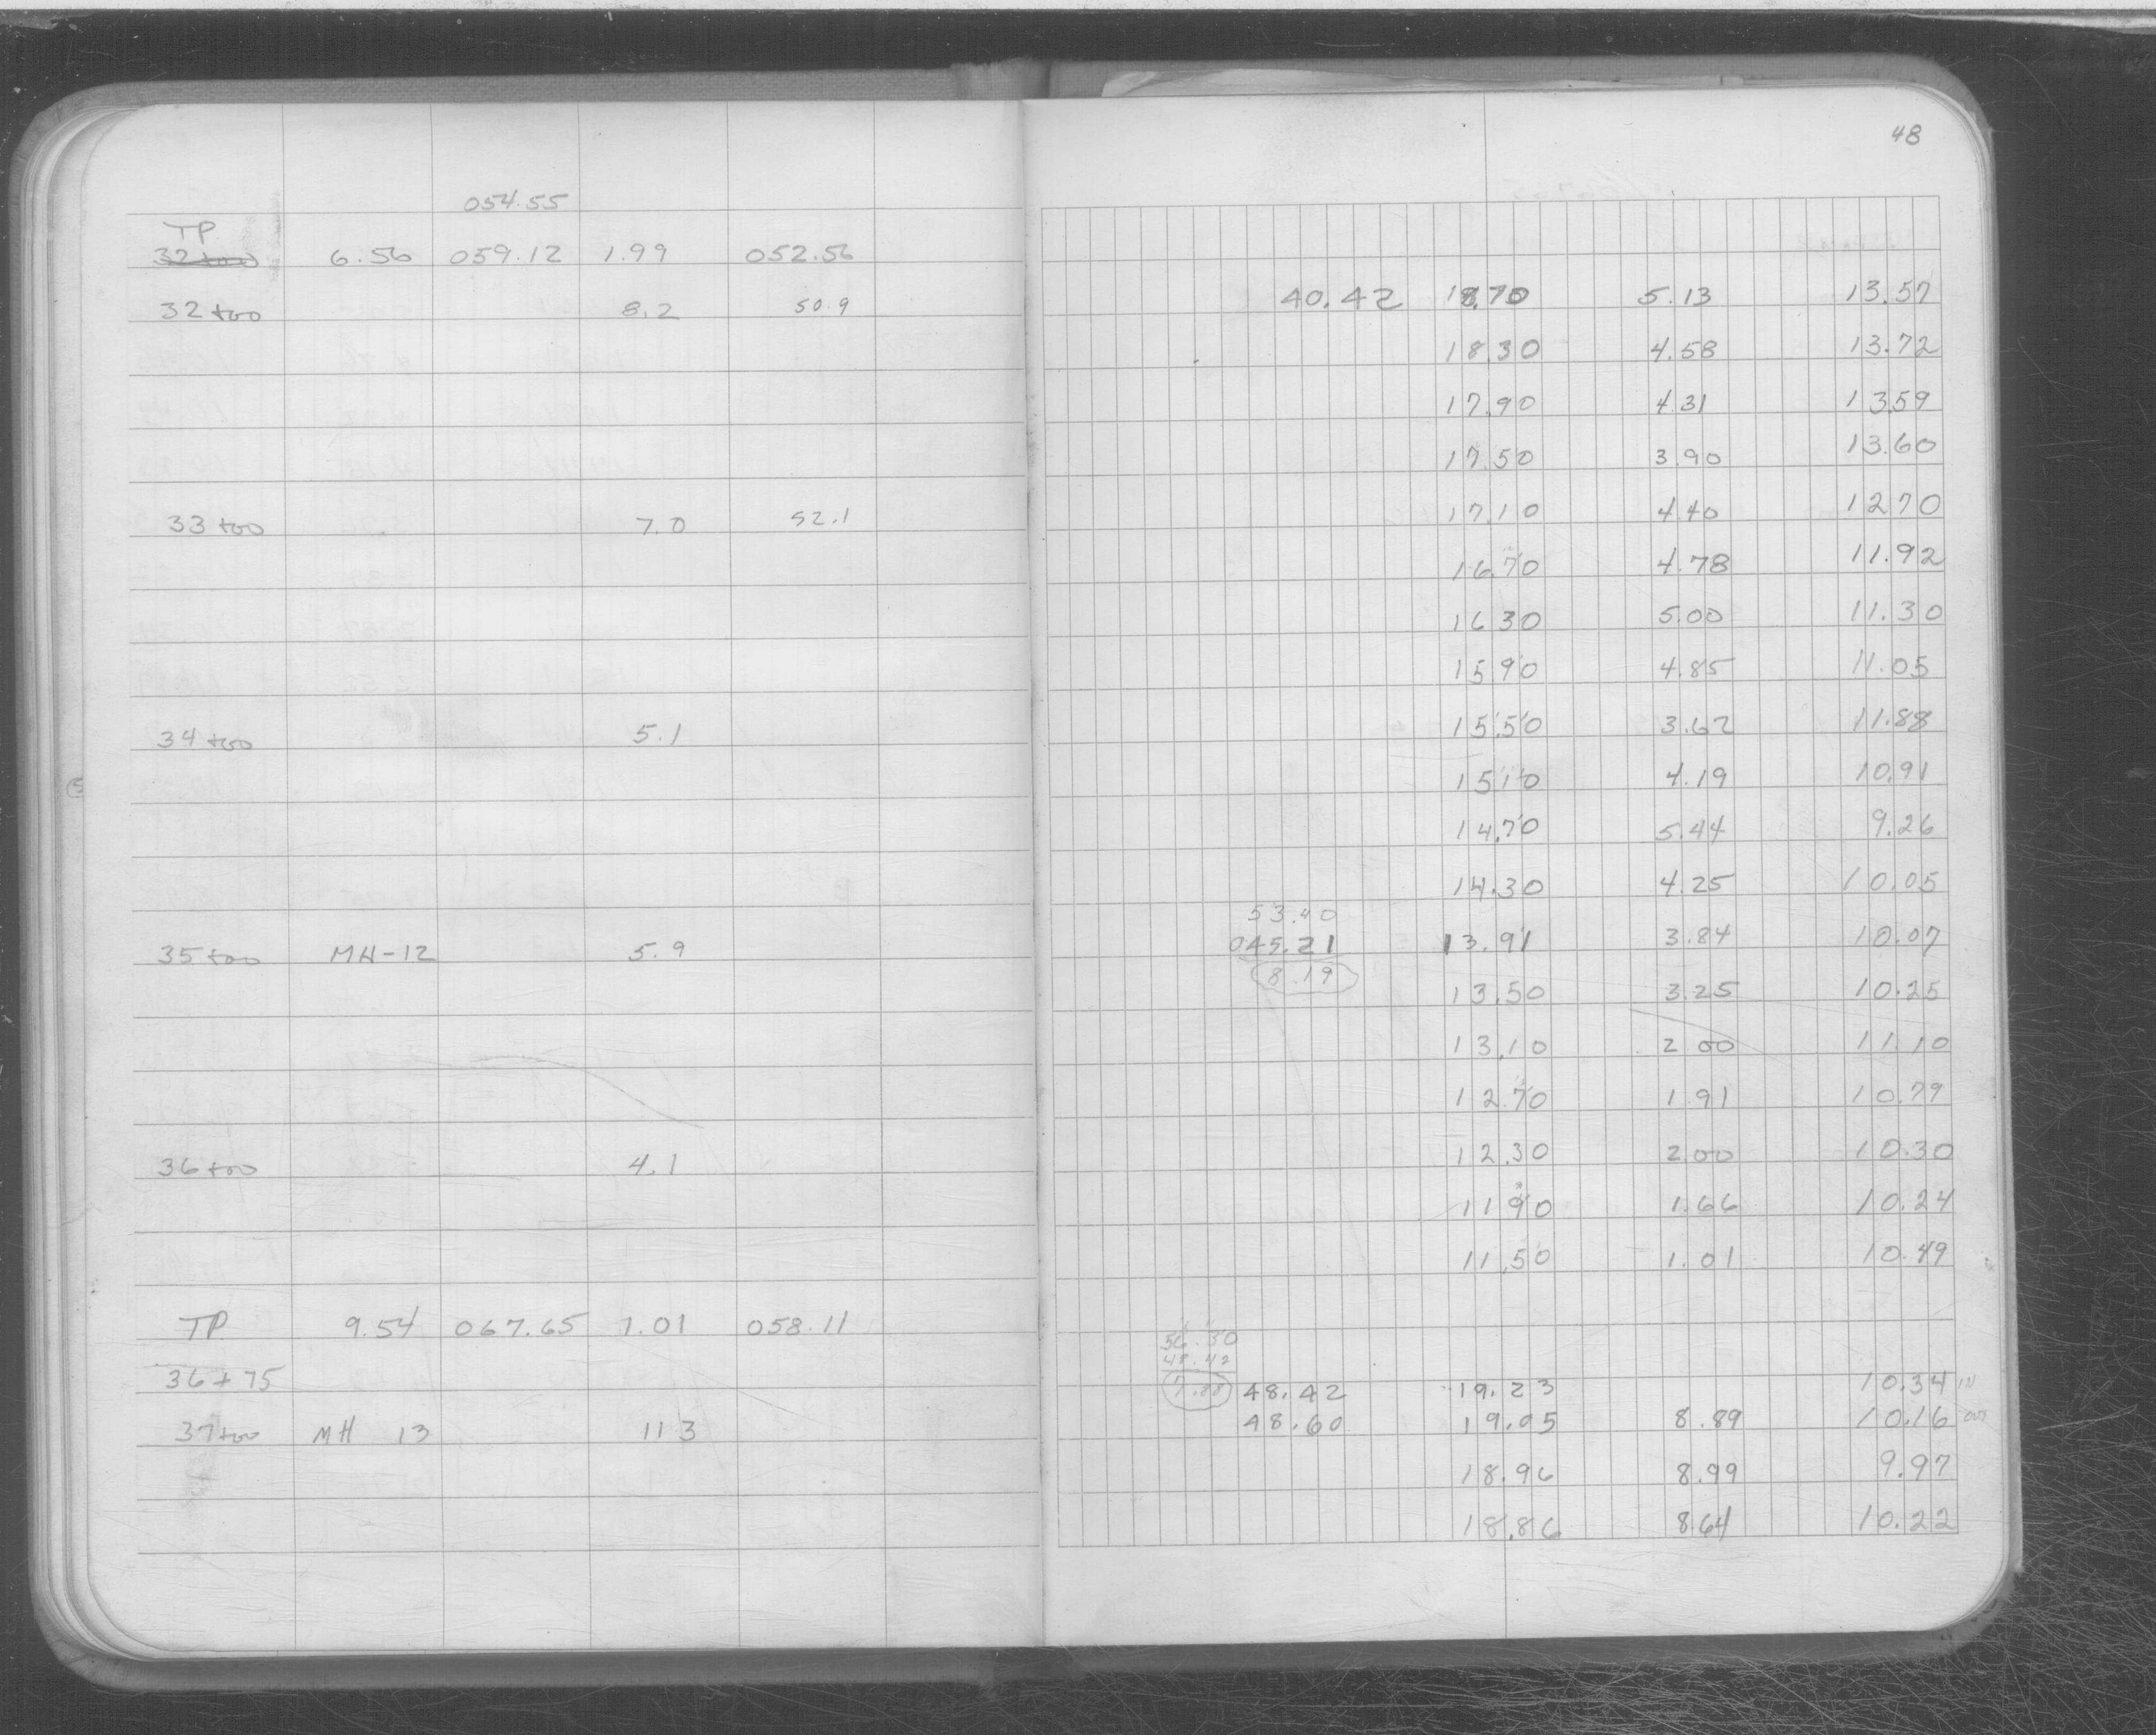 48
054.55
TP
32+00 6.56 059.12 1.99 052.56
32+00 8.2 50.9 40.42 18.70 5.13 13.57
18.30 4.58 13.72
17.90 4.31 13.59
17.50 3.90 13.60
33+00 7.0 52.1 17.10 4.40 12.70
16.70 4.78 11.92
16.30 5.00 11.30
15.90 4.85 11.05
34+00 5.1 15.50 3.62 11.88
15.10 4.19 10.91
14.70 5.44 9.26
14.30 4.25 10.05
53.40
35+00 MH-12 5.9 045.21 13.91 3.84 10.07
8.19
13.50 3.25 10.25
13.10 2.00 11.10
12.70 1.91 10.79
36+00 4.1 12.30 2.00 10.30
11.90 1.66 10.24
11.50 1.01 10.49
TP 9.54 067.65 1.01 058.11
56.30
48.42
36+75 7.88 48.42 19.23 10.34 IN
37+00 MH 13 11.3 48.60 19.05 8.89 10.16 OUT
18.96 8.99 9.97
18.86 8.64 10.22